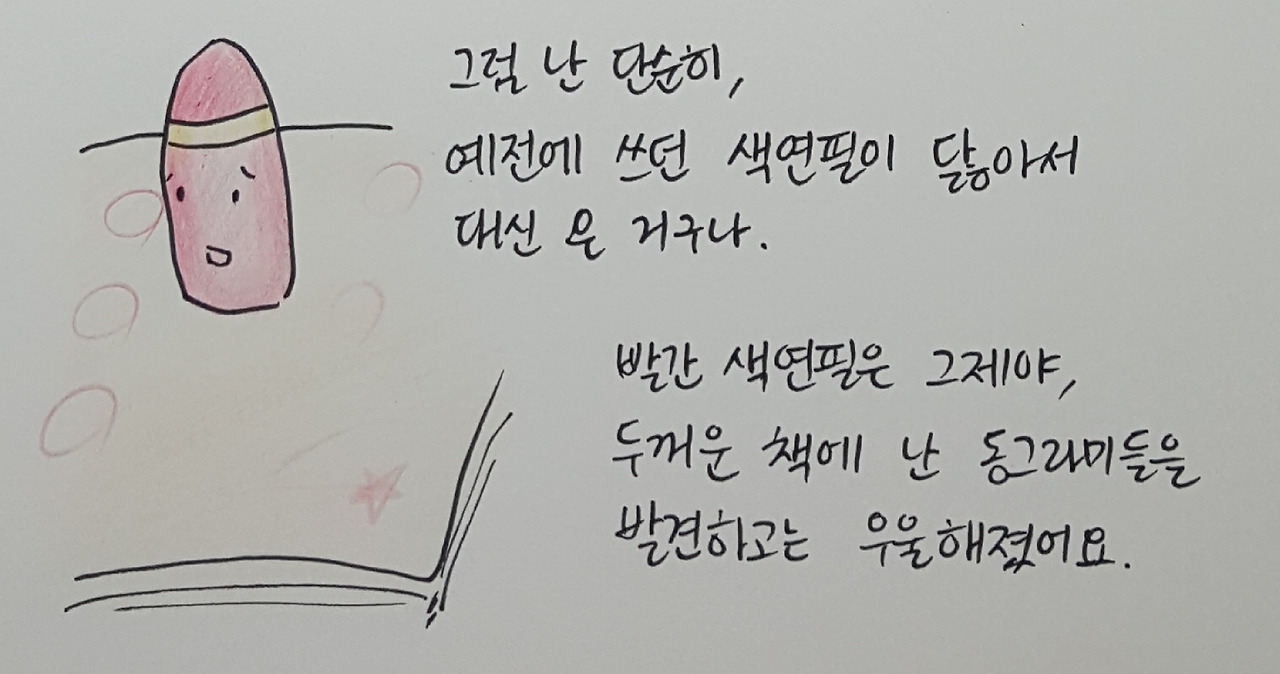 그럼 난 단순히,
예전에 쓰던 색연필이 닳아서
대신 온 거구나.
빨간 색연필은 그제야,
두꺼운 책에 난 동그라미들을
발견하고는 우울해졌어요.